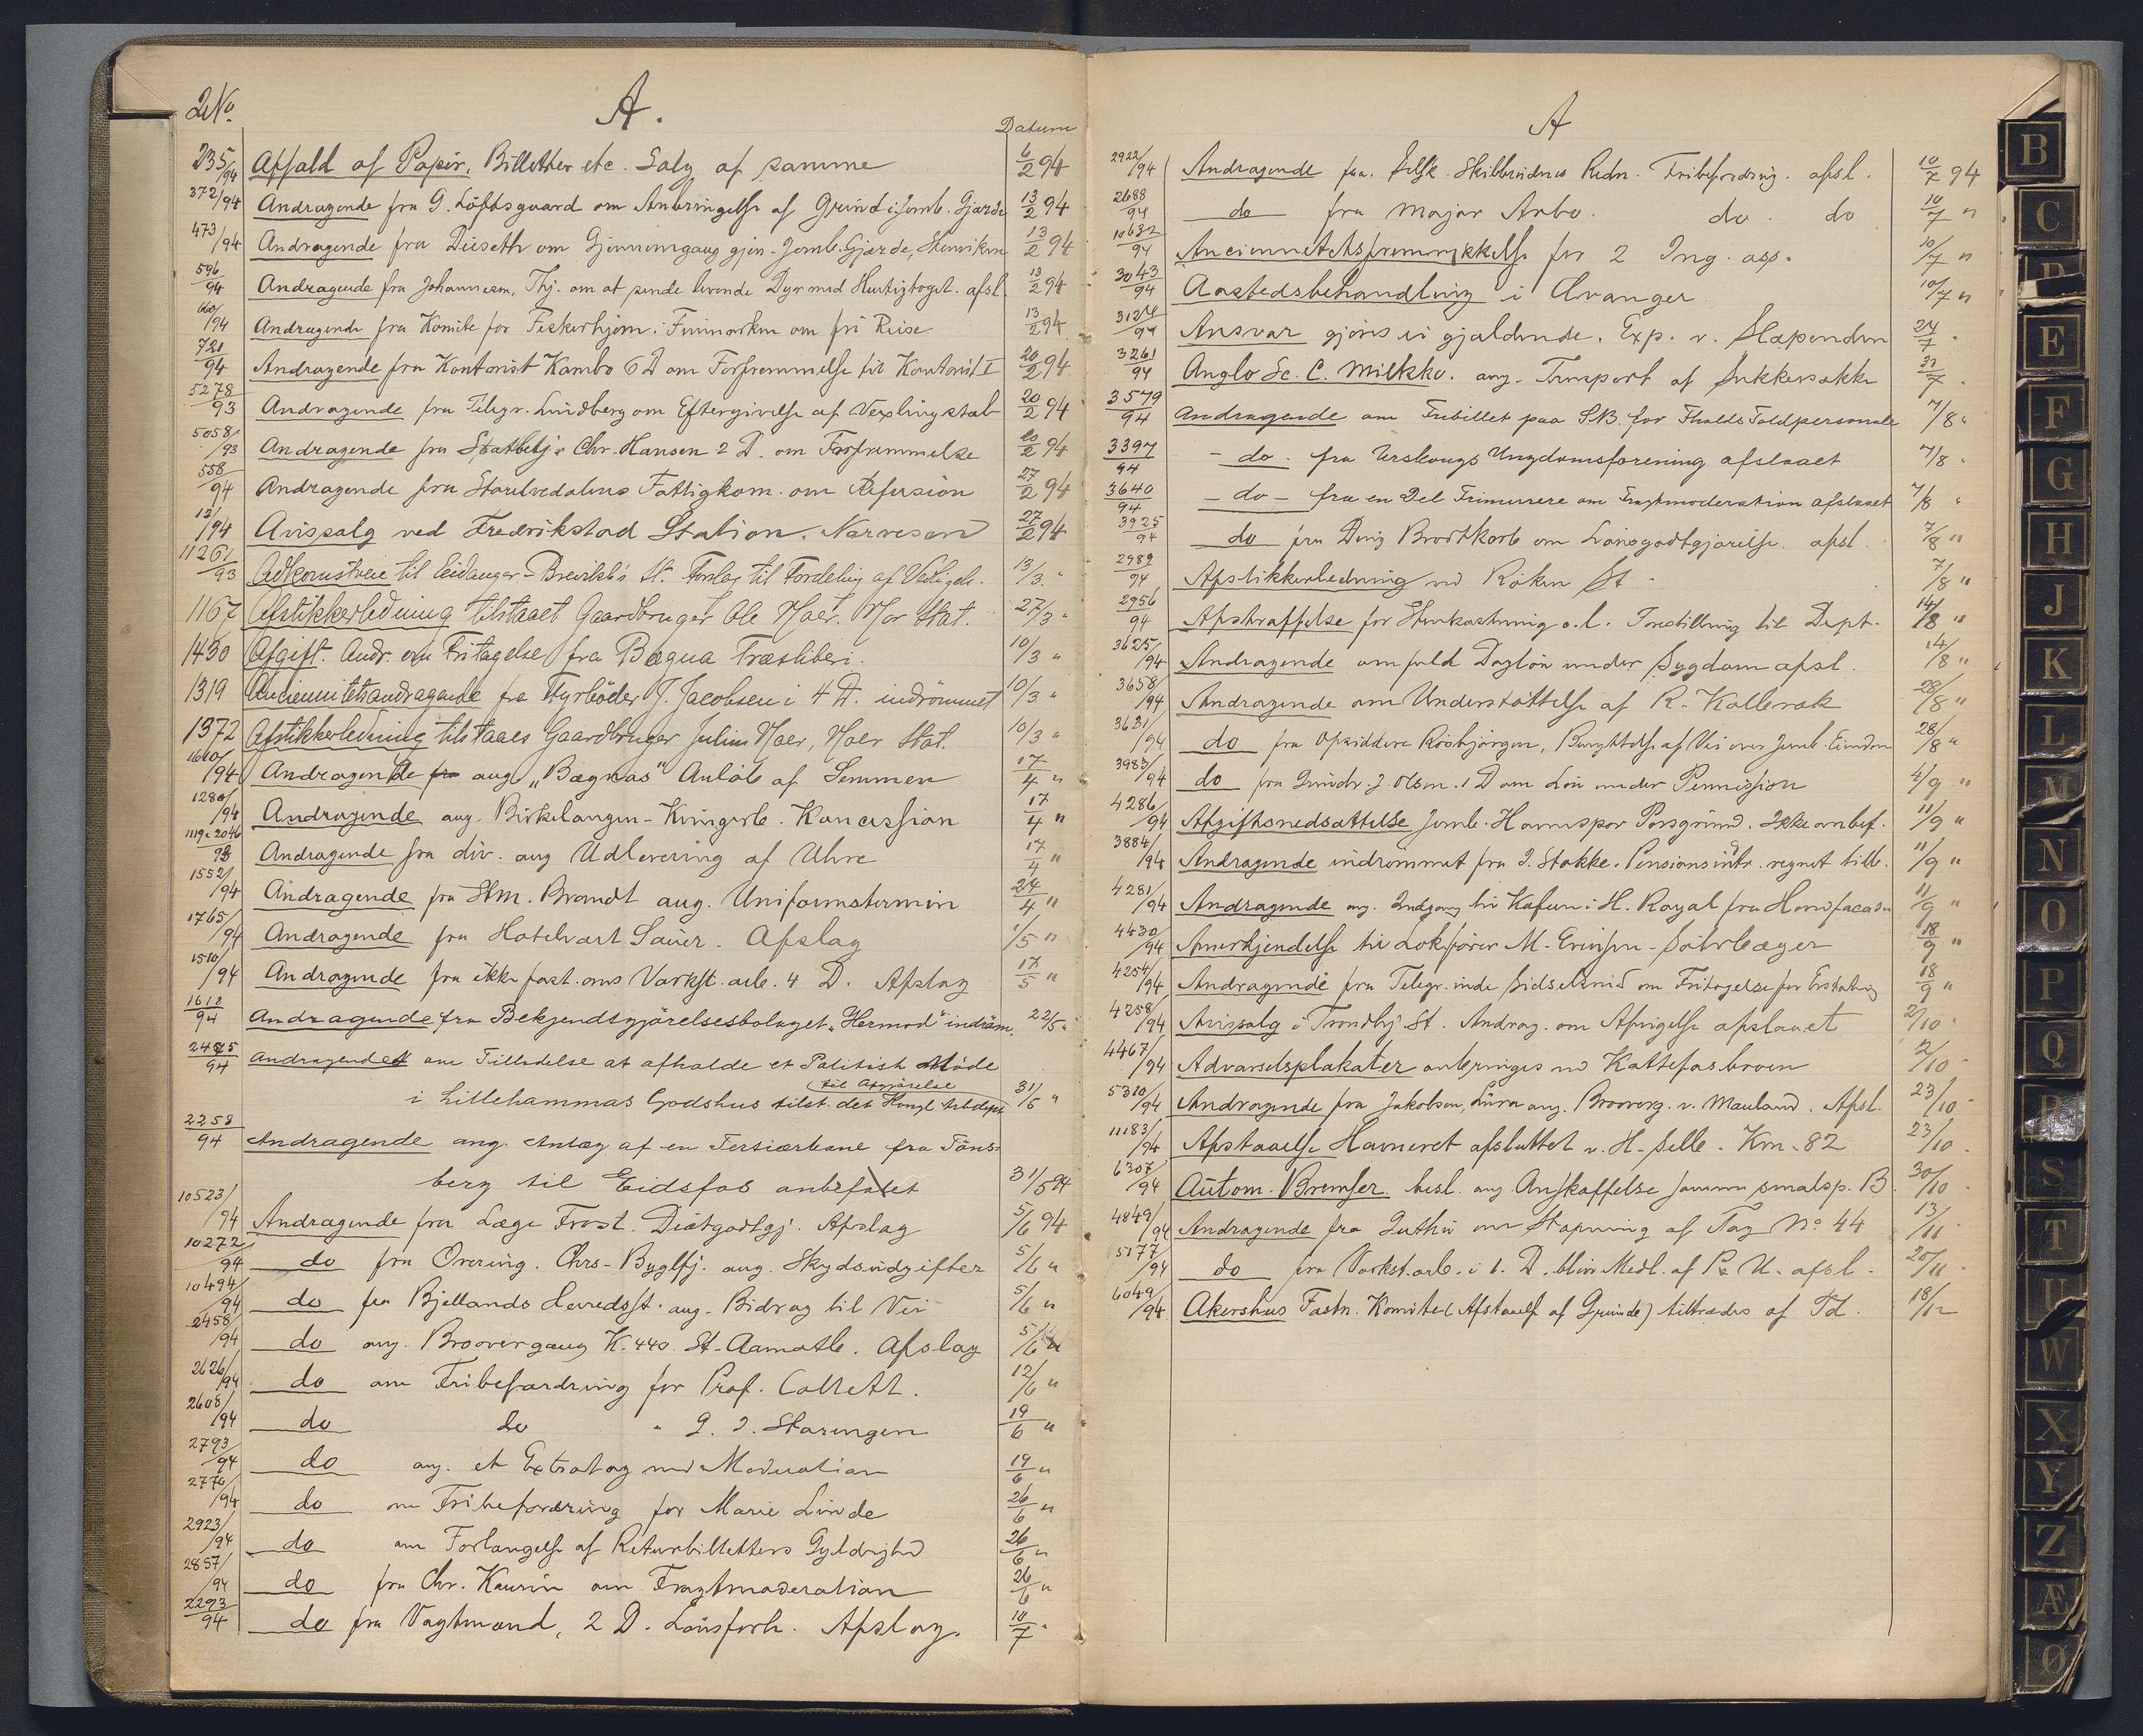 2 No.
A.
Datum
235/94 Affald af Papir, Billetter etc. Salg af samme 6/2 94
372/94 Andragende fra G. Löftsgaard om Anbringelse af Grind i Jernb. Gjærde 13/2 94
473/94 Andragende fra Diseth om Gjennemgang gjen. Jernb. Gjærde, 13/2 94
596/94 Andragende fra Johannesen, Thj. om at sende levende Dyr med Hurtigtoget. afsl. 13/2 94
660/94 Andragende fra Komite for Fiskerhjem i Finmarken om fri Reise 13/2 94
721/94 Andragende fra Kontorist Kambo 6 D om Forfremmelse til Kontorist I 20/2 94
5278/93 Andragende fra Telegr. Lindberg om Eftergivelse af Vexlingstab 20/2 94
5058/93 Andragende fra Statbetj. Chr. Hansen 2 D. om Forfremmelse 20/2 94
558/94 Andragende fra Storelvedalens Fattigkom. om Refusion 27/2 94
12/94 Avissalg ved Fredrikstad Station. Narvesen 27/2 94
11261/93 Adkomstveie til Eidanger-Brevikb's St. Forslag til Fordeling af Vedligeh. 13/3 "
1167 Afstikkerledning tilstaaet Gaardbruger Ole Moer. Moer Stat. 27/3 "
1430 Afgift. Andr. om Fritagelse fra Bægna Træsliberi. 10/3 "
1319 Anciennitetsandragende fra Fyrböder J. Jacobsen i 4 D. indrömmet 10/3 "
1372 Afstikkerledning tilstaaes Gaardbruger Julius Moer, Moer Stat. 10/3 "
1660/94 Andragende fra ang. "Bægnas" Anlöb af Semmen 17/4 "
1280/94 Andragende ang. Birkelangen-Kringerb. Koncession 17/4 "
1119 & 2046/93 Andragende fra div. ang Udlevering af Uhre 17/4 "
1552/94 Andragende fra Stm. Brandt ang. Uniformstermin 24/4 "
1765/94 Andragende fra Hotelvært Sauer. Afslag 1/5 "
1510/94 Andragende fra ikke fast. ans Værkst. arb. 4 D. Afslag 17/5 "
1618/94 Andragende fra Bekjendtgjörelsesbolaget "Hermod" indröm. 22/5 "
2475/94 Andragende om Tilladelse at afholde et Politisk Möde
til Afgjörelse
i Lillehammers Godshus tilst. det Kongl Arbdept 31/5 "
2258/94 Andragende ang. Anlæg af en Tertiærbane fra Töns-
berg til Eidsfos anbefalet 31/5 94
10523/94 Andragende fra Læge Frost. Diætgodtgj. Afslag 5/6 94
10272/94 do fra Overing. Chrs-Byglfj. ang. Skydsudgifter 5/6 "
10494/94 do fra Bjellands Herredsst. ang. Bidrag til Vei 5/6 "
2458/94 do ang. Broovergang K. 440. St-Aamotb. Afslag 5/6 "
2626/94 do om Fribefordring for Prof. Collett. 12/6 "
2608/94 do do " Staringen 19/6 "
2793/94 do ang. et Extratog med Moderation 19/6 "
2770/94 do om Fribefordring for Marie Linde 26/6 "
2923/94 do om Forlængelse af Returbilletters Gyldighed 26/6 "
2857/94 do fra Chr. Kaurin om Fragtmoderation 26/6 "
2293/94 do fra Vagtmænd, 2 D. Lönsforh. Afslag. 10/7 "
A
2922/94 Andragende fra Selsk. Skibbrudnes Redn. Fribefordring. afsl. 10/7 94
2688/94 do fra Major Arbo. do. do 10/7 "
10632/94 Anciennitetsfremrykkelse for 2 Ing. ass. 10/7 "
3043/94 Aastedsbehandling i Evanger 10/7 "
3124/94 Ansvar gjöres ei gjældende. Exp. v. Slæpenden 24/7 "
3261/94 Anglo Sc. C. Milkko. ang. Transport af Sukkersække 31/7 "
3579/94 Andragende om Fribillet paa S.B. for Fhalds Toldpersonale 7/8 "
3397/94 - do. fra Urskougs Ungdomsforening afslaaet 7/8 "
3640/94 - do - fra en Del Frimurere om Fragtmoderation afslaaet 7/8 "
3925/94 do fra Brodtkorb om Lönsgodtgjörelse. afsl. 7/8 "
2989/94 Afstikkerledning ved Röken St 7/8 "
2956/94 Afstraffelse for Stenkastning o.l. Forestilling til Dept. 14/8 "
3625/94 Andragende om fuld Daglön under Sygdom afsl. 14/8 "
3658/94 Andragende om Understöttelse af R. Kallerak 28/8 "
3631/94 do fra Opsidderne Rösbjörgen, Benyttelse af Vei over Jernb. Eiendom 28/8 "
3983/94 do fra J. Olsen. 1 D om Lön under Permission 4/9 "
4286/94 Afgiftsnedsættelse Jernb. Havnespor Porsgrund. Ikke anbef. 11/9 "
3884/94 Andragende indrömmet fra J. Stokke. Pensionsintr. regnet tilb. 11/9 "
4281/94 Andragende ang. Indgang til Kafeen i H. Royal fra Hovedfacaden 11/9 "
4430/94 Anerkjendelse til Lokförer M. Eriksen - Söbrlæger 18/9 "
4254/94 Andragende fra Telegr. inde Sidselsrud om Fritagelse for Erstatning 18/9 "
4258/94 Avissalg i Trondhj St. Andrag. om Afvigelse afslaaet 2/10 "
4467/94 Advarselsplakater anbringes ved Kattefosbroen 2/10 "
5310/94 Andragende fra Jakobsen, Lura ang. Brooverg. v. Mauland. Afsl. 23/10 "
11183/94 Afstaaelse Havneret afsluttet v. H. Selle. Km. 82 23/10 "
6307/94 Autom. Bremser. besl. ang Anskaffelse samme smalsp. B. 30/10 "
4849/94 Andragende fra Guthu om Stopning af Tog No 44 13/11 "
5177/94 do fra Værkst. arb. i 1. D. blive Medl. af P & U. afsl. 20/11 "
6049/94 Akershus Fæstn. Komite (Afstaaelse af Grunde) tiltrædes af Td. 18/12
B
C
D
E
F
G
H
J
K
L
M
N
O
P
Q
R
S
T
U
W
X
Y
Z
Æ
Ø